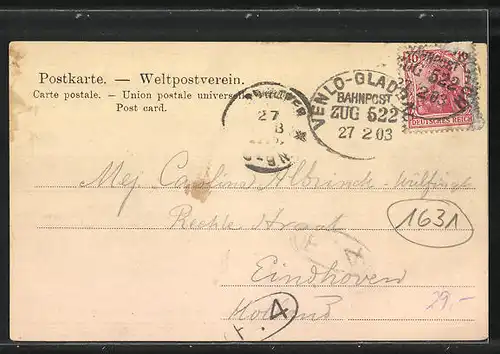 Postkarte. — Weltpostverein.
Carte postale. - Union postale universelle
Post card.
VENLO-GLADBACH
BAHNPOST
ZUG 522
27 2 03
10
DEUTSCHES REICH
27
Mej. Carolina
Rechte straat
1631
Eindhoven
Holland
4
29,-